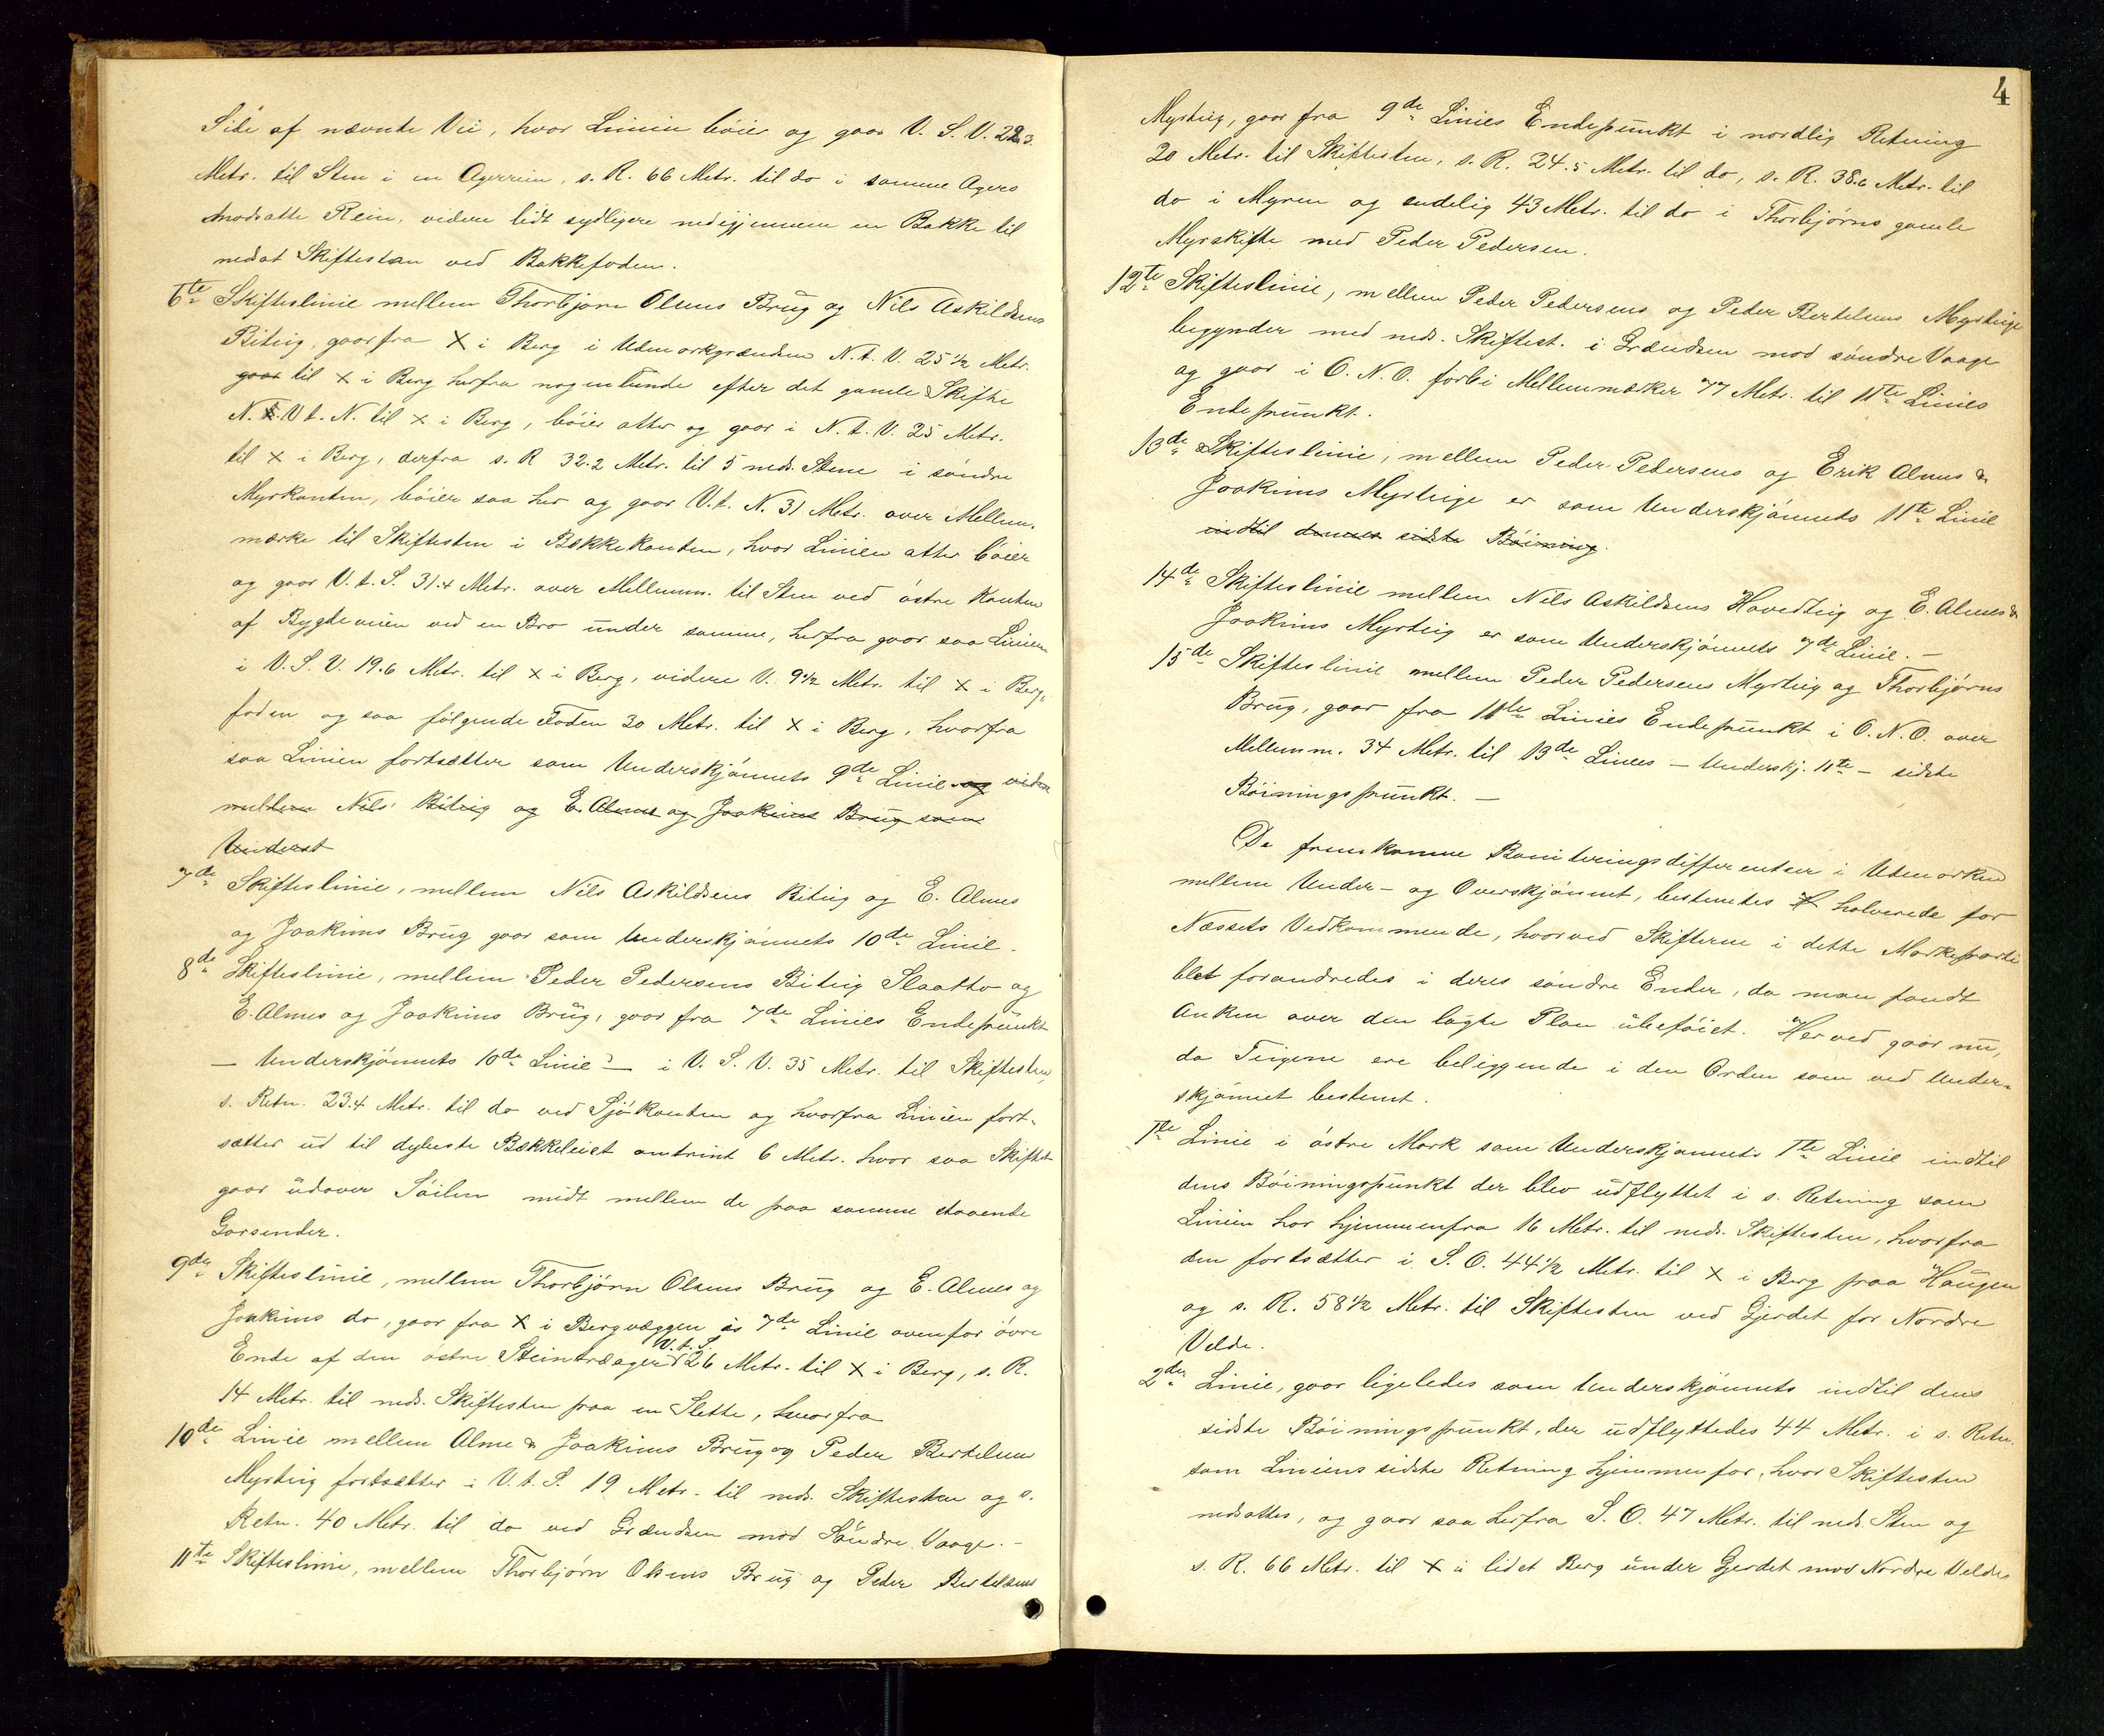 Side af nævnte Vei, hvor Linien böier og gaar V. S. V. 22.3
Metr. til Sten i en Agerrein, s. R. 66 Metr. til do i samme Agers
modsatte Rein, videre lidt sydligere nedigjennem en Bakke til
nedsat Skiftesten ved Bakkefoden.
6te Skifteslinie mellem Thorbjørn Olsens Brug og Nils Askildsens
Biteig, gaar fra X i Berg i Udmarkgrændsen N. t. V. 25 1/2 Metr.
gaar til X i Berg herfra nogenlunde efter det gamle Skifte
N. V. t. N. til X i Berg, böier atter og gaar i N. t. V. 25 Metr.
til X i Berg, derfra s. R 32.2 Metr. til 5 neds. Stene i söndre
Myrkanten, böier saa her og gaar V. t. N. 31 Metr. over Mellem-
mærke til Skiftesten i Bækkekanten, hvor Linien atter böier
og gaar V. t. S. 31.4 Metr. over Mellemm. til Sten ved östre Kanten
af Bygdeveien ved en Bro under samme, herfra gaar saa Linien
i V. S. V. 19.6 Metr. til X i Berg, videre V. 9 1/2 Metr. til X i Berg-
foden og saa fölgende Foden 30 Metr. til X i Berg, hvorfra
saa Linien fortsætter som Underskjönnets 9de Linie og videre
mellem Nils' Biteig og E. Almes og Joakims Brug som
Underst
7de Skifteslinie, mellem Nils Askildsens Biteig og E. Almes
og Joakims Brug gaar som Underskjönnets 10de Linie.
8de Skifteslinie, mellem Peder Pedersens Biteig Slaatto og
E. Almes og Joakims Brug, gaar fra 7de Linies Endepunkt
— Underskjönnets 10de Linie — i V. S. V. 35 Metr. til Skiftesten,
s. Retn. 23.4 Metr. til do ved Sjökanten og hvorfra Linien fort-
sætter ud til dybeste Bækkeleiet omtrint 6 Metr. hvor saa Skiftet
gaar udover midt mellem de paa samme staaende
9de Skifteslinie, mellem Thorbjörn Olsens Brug og E. Almes og
Joakims do, gaar fra X i Bergvæggen i 7de Linie ovenfor övre
Ende af den östre V. t. S. 26 Metr. til X i Berg, s. R.
14 Metr. til neds. Skiftesten paa en Slette, hvorfra
10de Linie mellem Alme & Joakims Brug og Peder Bertelsens
Myrteig fortsætter i V. t. S. 19 Metr. til neds. Skiftesten og s.
Retn. 40 Metr. til do ved Grændsen mod Söndre Vaage. —
11te Skifteslinie, mellem Thorbjörn Olsens Brug og Peder Bertelsens
4
Myrteig, gaar fra 9de Linies Endepunkt i nordlig Retning
20 Metr. til Skiftesten, s. R. 24.5 Metr. til do, s. R. 38.6 Metr. til
do i Myren og endelig 43 Metr. til do i Thorbjörns gamle
Myrskifte med Peder Pedersen.
12te Skifteslinie, mellem Peder Pedersens og Peder Bertelsens Myrteige
begynder med neds. Skiftest. i Grændsen mod söndre Vaage
og gaar i O. N. O. forbi Mellemmærker 77 Metr. til 11te Linies
Endepunkt.
13de Skifteslinie, mellem Peder Pedersens og Erik Almes &
Joakims Myrteige er som Underskjönnets 11te Linie
indtil dennes sidste Böining.
14de Skifteslinie mellem Nils Askildsens Hovedteig og E. Almes &
Joakims Myrteig er som Underskjönnets 7de Linie. —
15de Skifteslinie mellem Peder Pedersens Myrteig og Thorbjörns
Brug, gaar fra 11te Linies Endepunkt i O. N. O. over
Mellemm. 34 Metr. til 13de Linies — Underskj. 11te — sidste
Böiningspunkt. —
De fremkomne Boniteringsdifferentser i Udmarken
mellem Under- og Overskjönnet, bestemtes halverede for
Næssets Vedkommende, hvorved Skifterne i dette Markeparti
blet forandredes i deres söndre Ender, da man fandt
Anken over den lagte Plan ubeföiet. Herved gaar nu,
da Teigene ere beliggende i den Orden som ved Under-
skjönnet bestemt.
1te Linie i östre Mark som Underskjönnets 1te Linie indtil
dens Böiningspunkt der blev udflyttet i s. Retning som
Linien har hjemmenfra 16 Metr. til neds. Skiftesten, hvorfra
den fortsætter i S. O. 44 1/2 Metr. til X i Berg paa Haugen
og s. R. 58 1/2 Metr. til Skiftesten ved Gjerdet for Nordre
Velde.
2den Linie, gaar ligeledes som Underskjönnets indtil dens
sidste Böiningspunkt, der udflyttedes 44 Metr. i s. Retn.
som Liniens sidste Retning hjemmenfor, hvor Skiftesten
nedsattes, og gaar saa herfra S. O. 47 Metr. til neds. Sten og
s. R. 66 Metr. til X i lidet Berg under Gjerdet mod Nordre Veldes